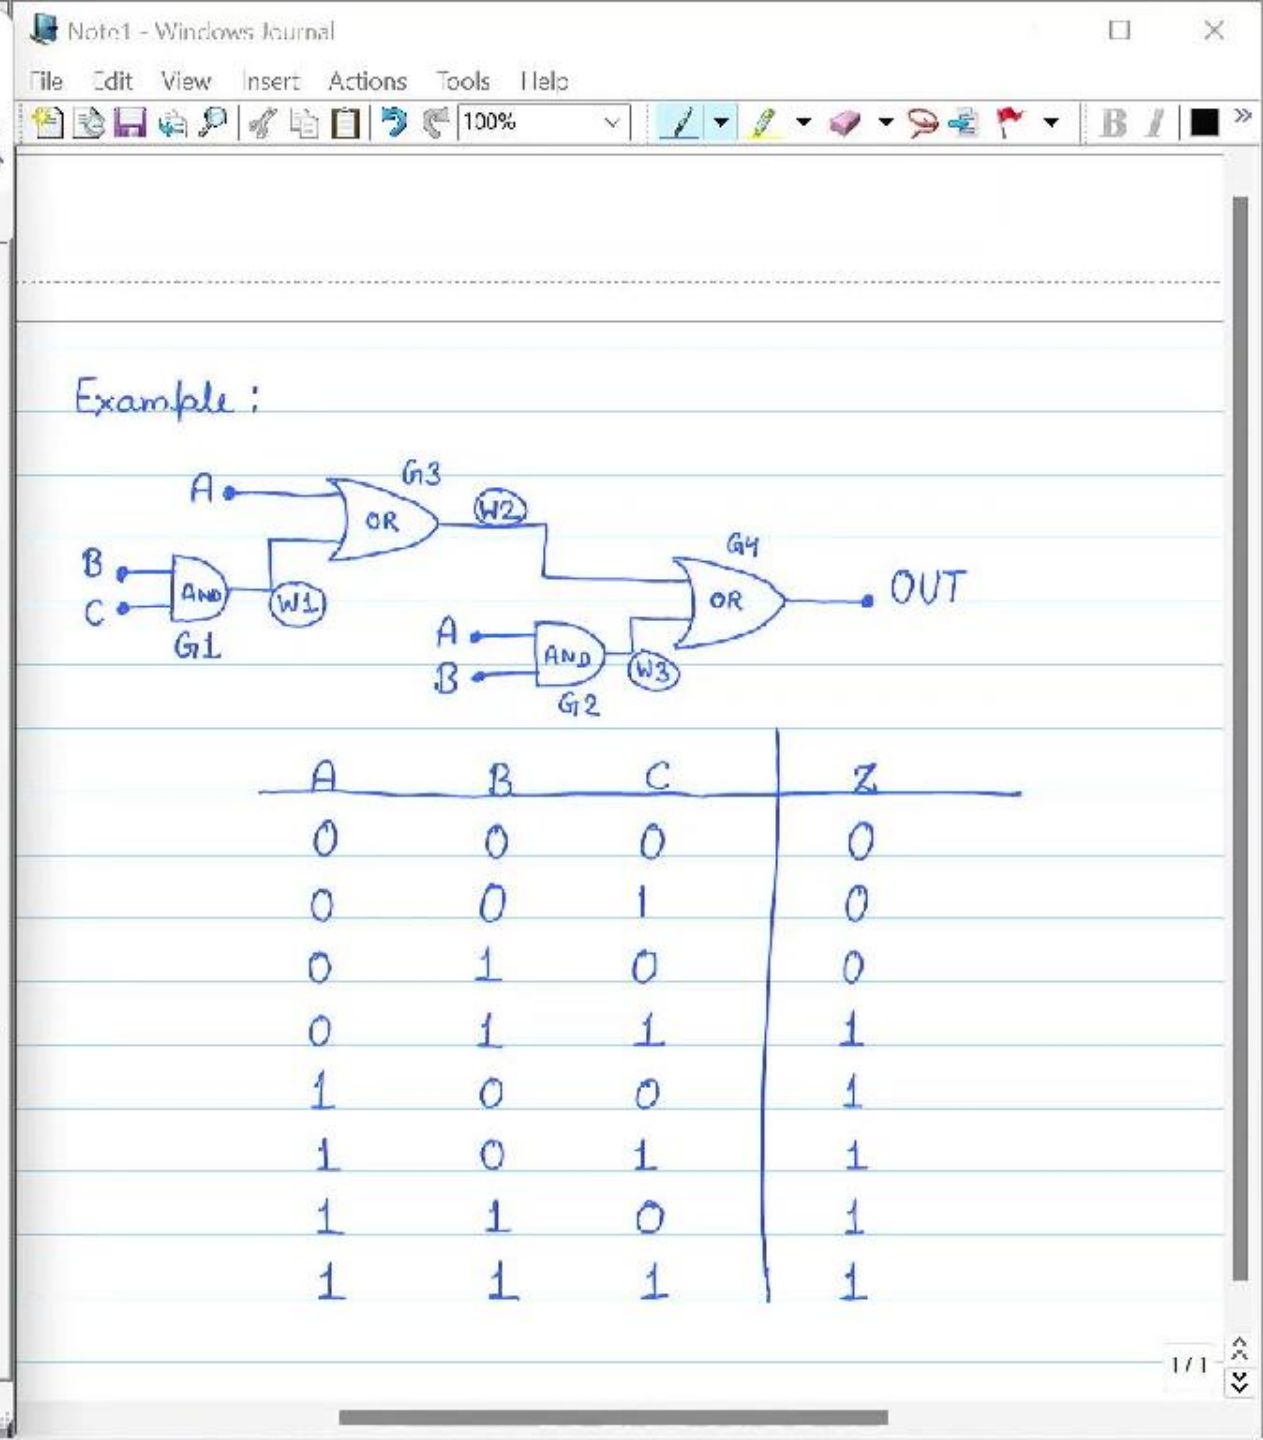 Note1 - Windows Journal
File Edit View Insert Actions Tools Help
100%
B I
Example :
A
G3
OR
W2
B
C
AND
W1
G1
G4
OR
OUT
A
B
AND
W3
G2
A B C Z
0 0 0 0
0 0 1 0
0 1 0 0
0 1 1 1
1 0 0 1
1 0 1 1
1 1 0 1
1 1 1 1
1 / 1